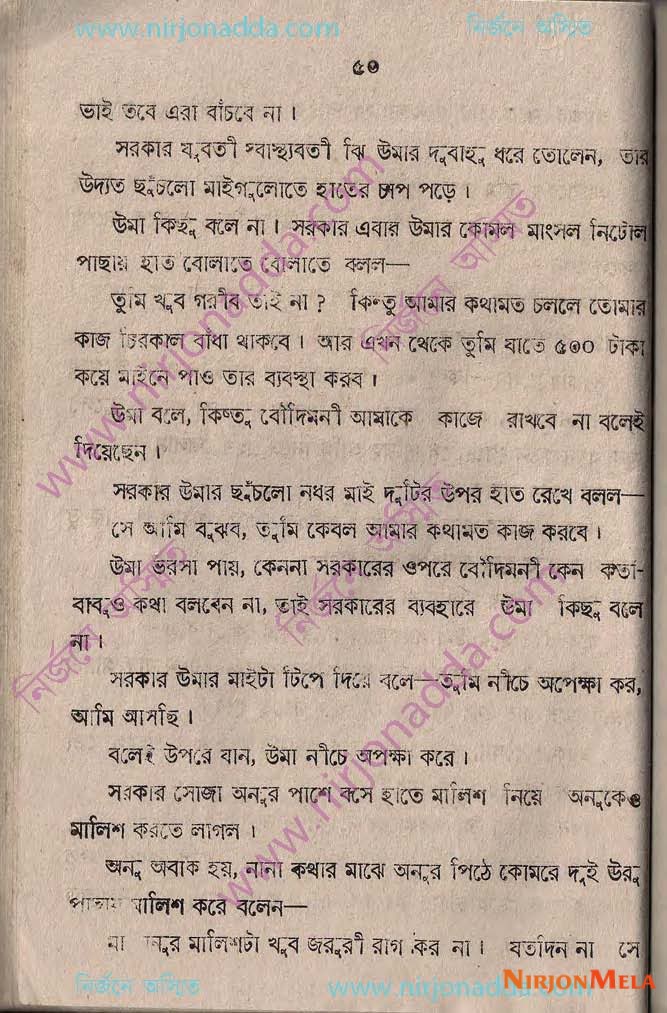 www.nirjonadda.com নির্জনে অস্মিত
৫০
ভাই তবে এরা বাঁচবে না ।
সরকার যুবতী স্বাস্থ্যবতী ঝি উমার দুবাহু ধরে তোলেন, তার
উদ্যত ছুঁচলো মাইগুলোতে হাতের চাপ পড়ে ।
উমা কিছু বলে না । সরকার এবার উমার কোমল মাংসল নিটোল
পাছায় হাত বোলাতে বোলাতে বলল—
তুমি খুব গরীব তাই না ? কিন্তু আমার কথামত চললে তোমার
কাজ চিরকাল বাঁধা থাকবে । আর এখন থেকে তুমি যাতে ৫০০ টাকা
করে মাইনে পাও তার ব্যবস্থা করব ।
উমা বলে, কিন্তু বৌদিমনী আমাকে কাজে রাখবে না বলেই
দিয়েছেন ।
সরকার উমার ছুঁচলো নধর মাই দুটির উপর হাত রেখে বলল—
সে আমি বুঝব, তুমি কেবল আমার কথামত কাজ করবে ।
উমা ভরসা পায়, কেননা সরকারের ওপরে বৌদিমনী কেন কর্তা-
বাবুও কথা বলবেন না, তাই সরকারের ব্যবহারে উমা কিছু বলে
না ।
সরকার উমার মাইটা টিপে দিয়ে বলে—তুমি নীচে অপেক্ষা কর,
আমি আসছি ।
বলেই উপরে যান, উমা নীচে অপক্ষা করে ।
সরকার সোজা অনুর পাশে বসে হাতে মালিশ নিয়ে অনুকেও
মালিশ করতে লাগল ।
অনু অবাক হয়, নানা কথার মাঝে অনুর পিঠে কোমরে দুই উরু
মালিশ করে বলেন—
মা মালিশটা খুব জরুরী রাগ কর না । যতদিন না সে
নির্জনে অস্মিত www.nirjonadda.com
NIRJONMELA
www.nirjonadda.com নির্জনে অস্মিত
নির্জনে অস্মিত www.nirjonadda.com